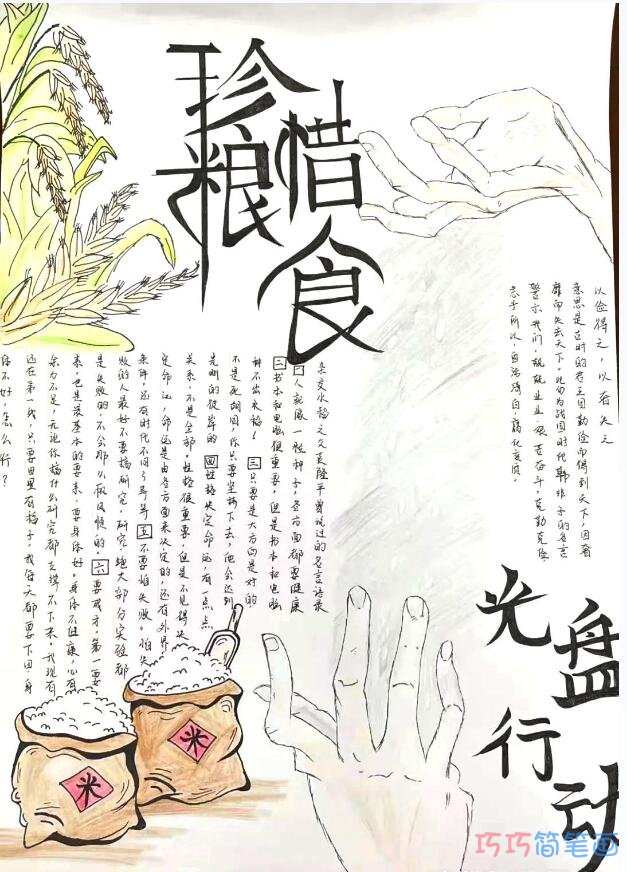 珍惜
粮食
以俭得之，以奢失之
意思是古时的君王因勤俭而得到天下，因奢
靡而失去天下。此句为战国时代韩非子的名言
警示我们，兢兢业业、艰苦奋斗，克勤克俭
忘乎所以，腐化衰退。
杂交水稻之父袁隆平曾说过的名言语录
一人就像一粒种子，各方面都要健康
二书本和电脑很重要，但是书本和电脑
种不出水稻！三只要是大方向是对的
不是死胡同，你只要坚持下去，他会达到
光明的彼岸的 四性格决定命运有一点点
关系，不是全部，性格很重要，但是不见得决
定命运，命运是由各方面来决定的，还有外界
条件，还有时代不同了等等 五不要怕失败。怕失
败的人最好不要搞研究，研究绝大部分实验都
是失败的，不会那么一帆风顺的。六要成才，第一要
素，也是最基本的要素，要身体好，身体不健康，心有
余力不足，无论你搞什么研究都支撑不下来，我现有
还在第一线，只要田里有稻子，我每天都要下田，身
体不好，怎么行？
光盘
行动
米
米
巧巧简笔画